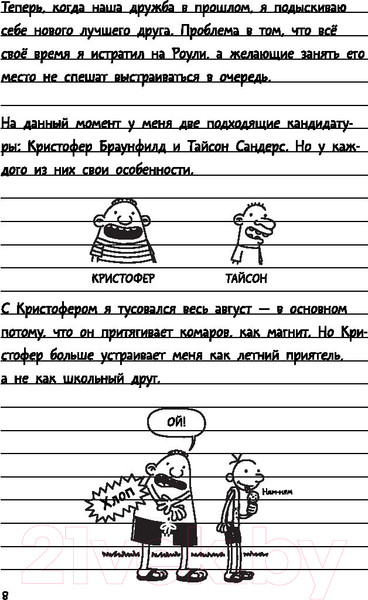 Теперь, когда наша дружба в прошлом, я подыскиваю
себе нового лучшего друга. Проблема в том, что всё
своё время я истратил на Роули, а желающие занять его
место не спешат выстраиваться в очередь.
На данный момент у меня две подходящие кандидату-
ры: Кристофер Браунфилд и Тайсон Сандерс. Но у каж-
дого из них свои особенности.
КРИСТОФЕР ТАЙСОН
С Кристофером я тусовался весь август — в основном
потому, что он притягивает комаров, как магнит. Но Кри-
стофер больше устраивает меня как летний приятель,
а не как школьный друг.
ОЙ!
Хлоп
Ням-ням
8
21vek.by